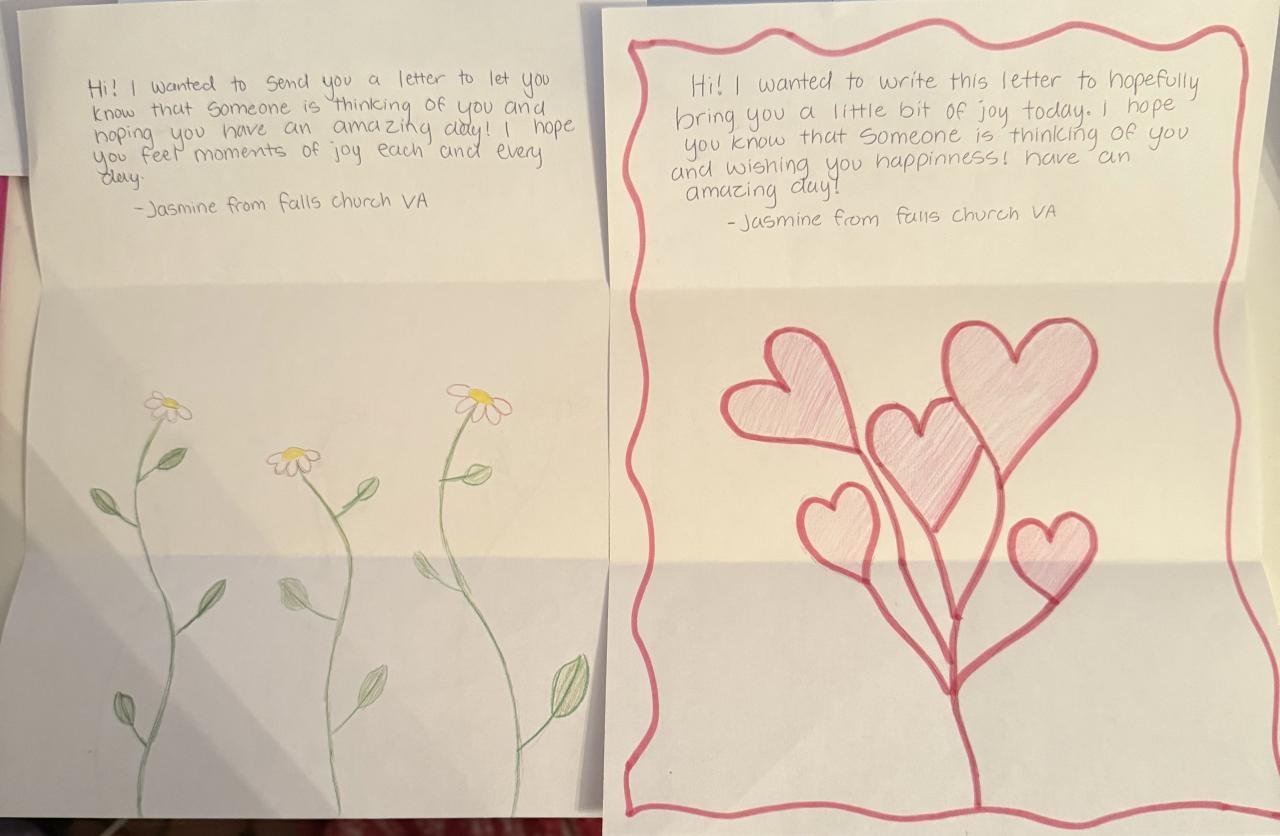 Hi! I wanted to send you a letter to let you
know that someone is thinking of you and
hoping you have an amazing day! I hope
you feel moments of joy each and every
day.
-Jasmine from falls church VA
Hi! I wanted to write this letter to hopefully
bring you a little bit of joy today. I hope
you know that someone is thinking of you
and wishing you happinness! have an
amazing day!
-Jasmine from falls church VA